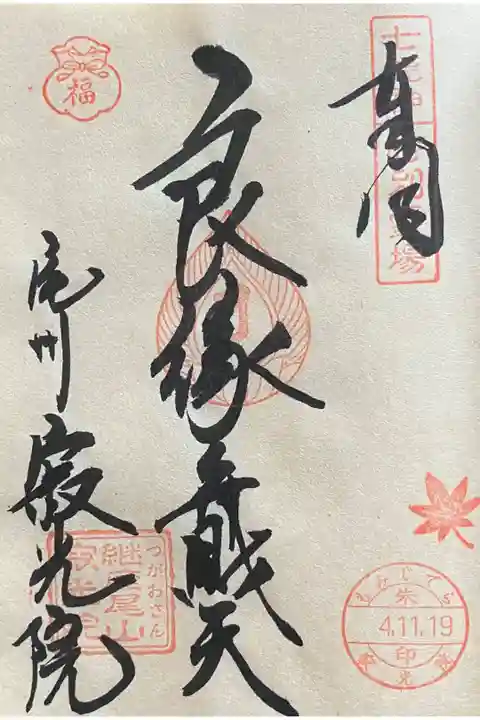 奉拝
良縁弁戝天
尾州 寂光院
福
つがおさん
継鹿尾山
寂光院
もみじでら
朱
4.11.19
印